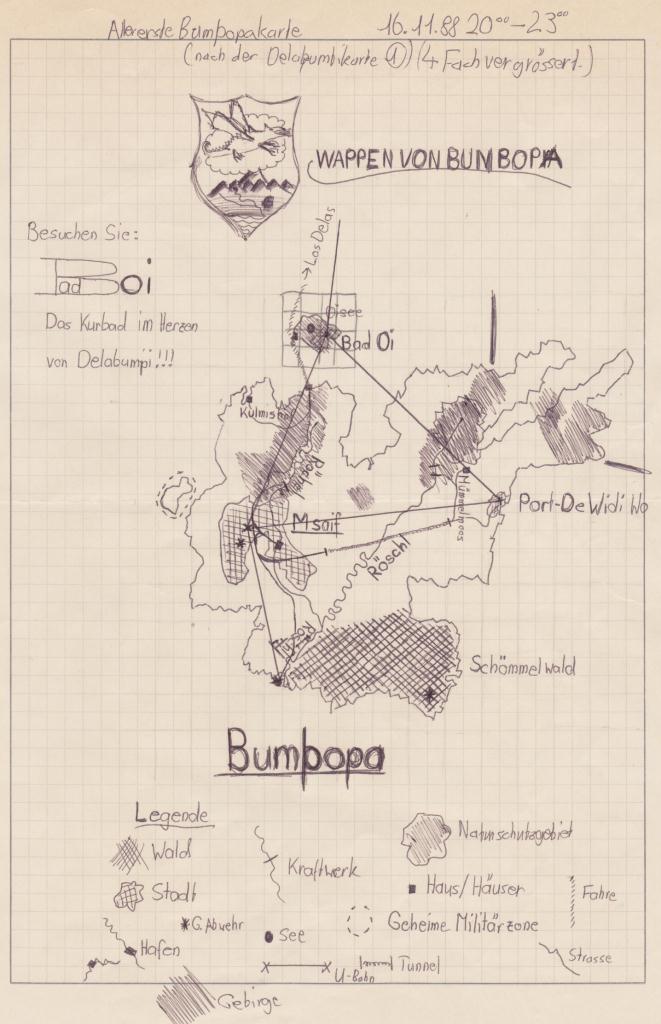 Allererste Bumbopakarte 16.11.88 20⁰⁰-23⁰⁰
(nach der Delapumbikarte ①) (4 Fach vergrössert.)
WAPPEN VON BUMBOPA
Besuchen Sie:
Bad Oi
Das Kurbad im Herzen
von Delabumpi!!!
→ Los Delas
Oisee
Bad Oi
Röschl
Msaif
Mümmelmoos
Port-De Widi Wo
Röschl
Röschl
Schömmelwald
Bumbopa
Legende
Wald
Stadt
G. Abwehr
Hafen
Gebirge
Kraftwerk
See
U-Bahn
Tunnel
Naturschutzgebiet
Haus/Häuser
Geheime Militärzone
Fähre
Strasse